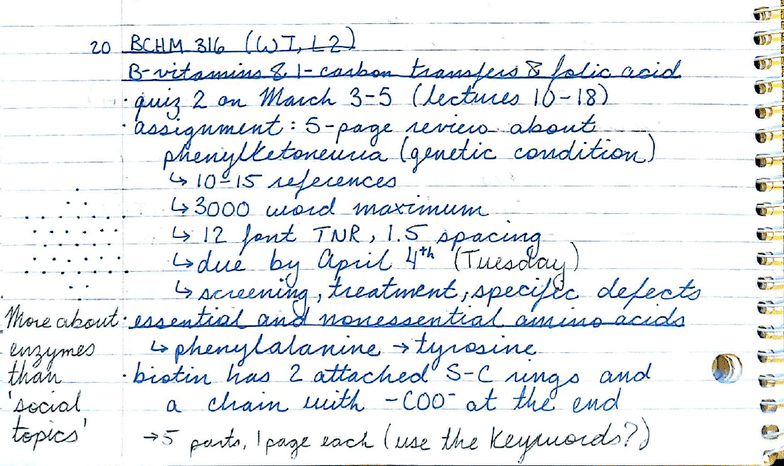 20 BCHM 316 (W I, L2)
B-vitamins & 1-carbon transfers & folic acid
· quiz 2 on March 3-5 (lectures 10-18)
· assignment: 5-page review about
phenylketoneuria (genetic condition)
↳ 10-15 references
↳ 3000 word maximum
↳ 12 font TNR, 1.5 spacing
↳ due by April 4th (Tuesday)
↳ screening, treatment, specific defects
· essential and nonessential amino acids
↳ phenylalanine → tyrosine
· biotin has 2 attached S-C rings and
a chain with -COO⁻ at the end
→ 5 parts, 1 page each (use the keywords?)
More about
enzymes
than
'social
topics'